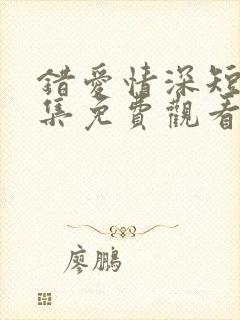 錯愛情深短
集免費觀看
廖鵬